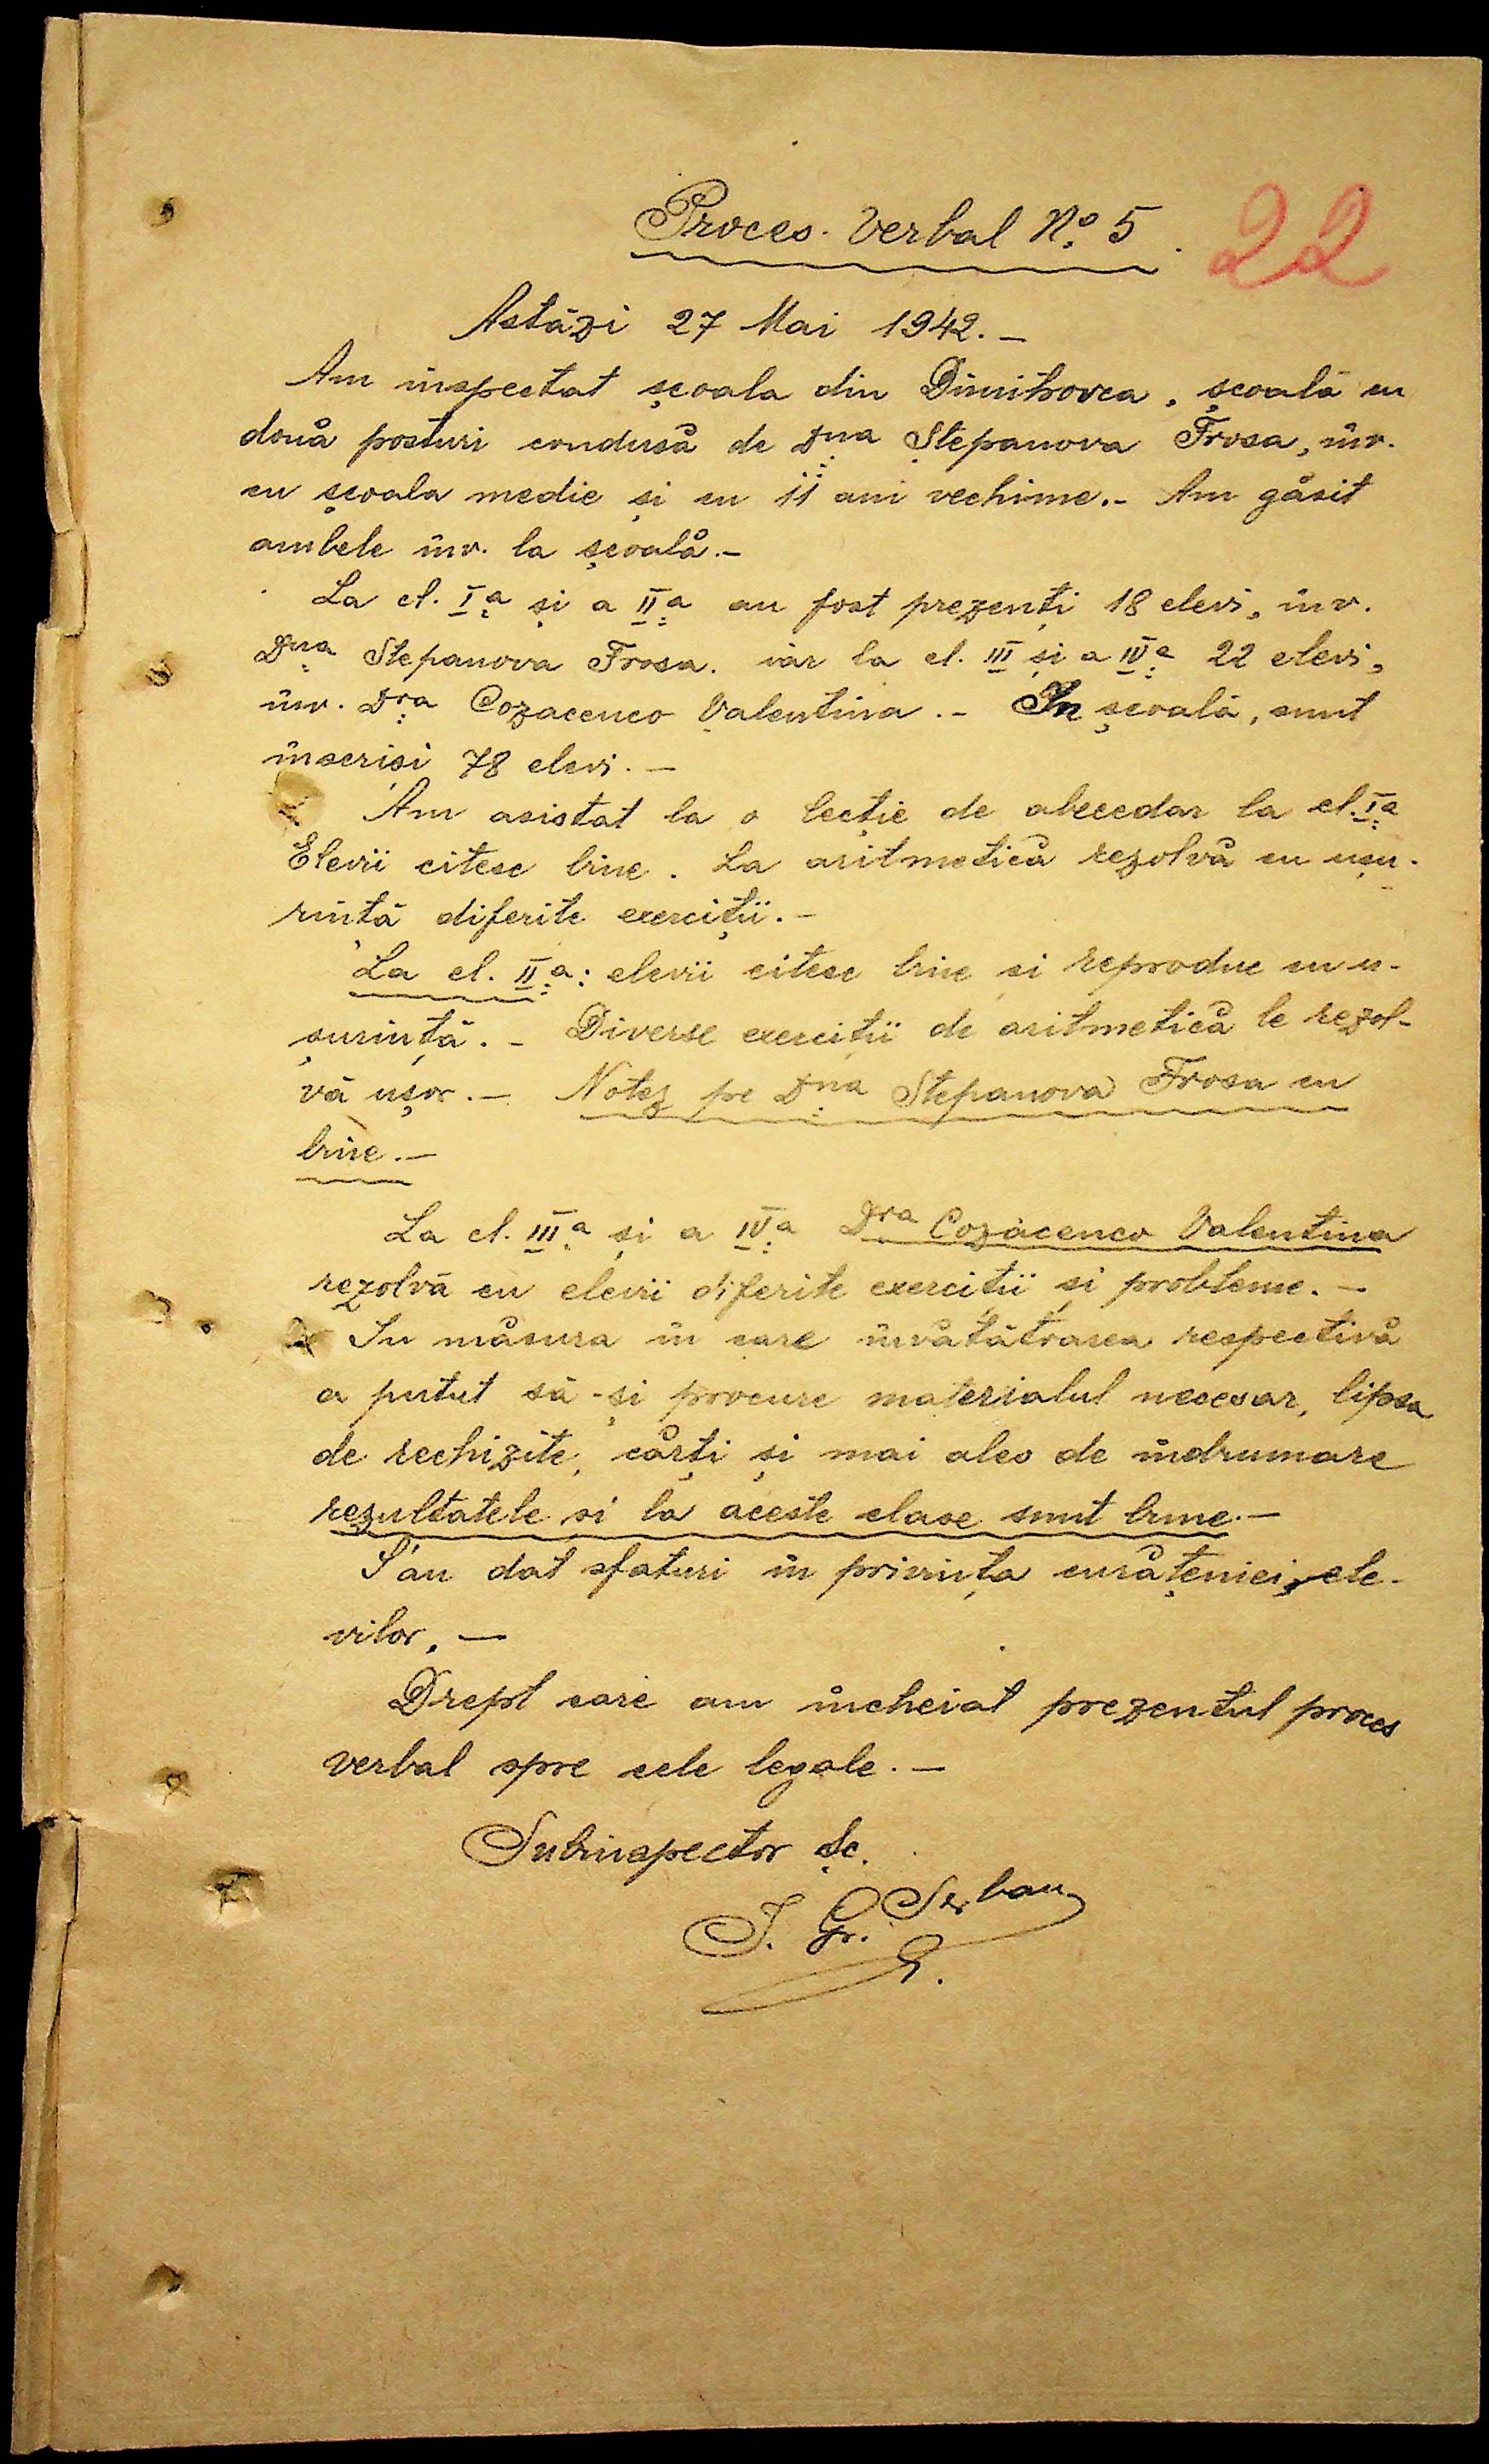 Proces-Verbal Nº 5
22
Astăzi 27 Mai 1942.-
Am inspectat școala din Dimitrovca, școală cu
două posturi condusă de Dna Stepanova Frosa, înv.
cu școala medie și cu 11 ani vechime.- Am găsit
ambele înv. la școală.-
La cl. I-a și a II-a au fost prezenți 18 elevi, înv.
Dna Stepanova Frosa. iar la cl. III și a IV-a 22 elevi,
înv. Dra Cozacenco Valentina.- In școală, sunt
înscriși 78 elevi.-
Am asistat la o lecție de abecedar la cl. I-a
Elevii citesc bine. La aritmetică rezolvă cu ușu-
rință diferite exerciții.-
La cl. II-a: elevii citesc bine și reproduc cu u-
șurință.- Diverse exerciții de aritmetică le rezol-
vă ușor.- Notez pe Dna Stepanova Frosa cu
bine.-
La cl. III-a și a IV-a Dra Cozacenco Valentina
rezolvă cu elevii diferite exerciții și probleme.-
In măsura în care învățătoarea respectivă
a putut să-și procure materialul necesar, lipsa
de rechizite, cărți și mai ales de îndrumare
rezultatele și la aceste clase sunt bune.-
S'au dat sfaturi în privința curățeniei ele-
vilor.-
Drept care am încheiat prezentul proces
verbal spre cele legale.-
Subinspector Șc.
I. Gr. Șerban